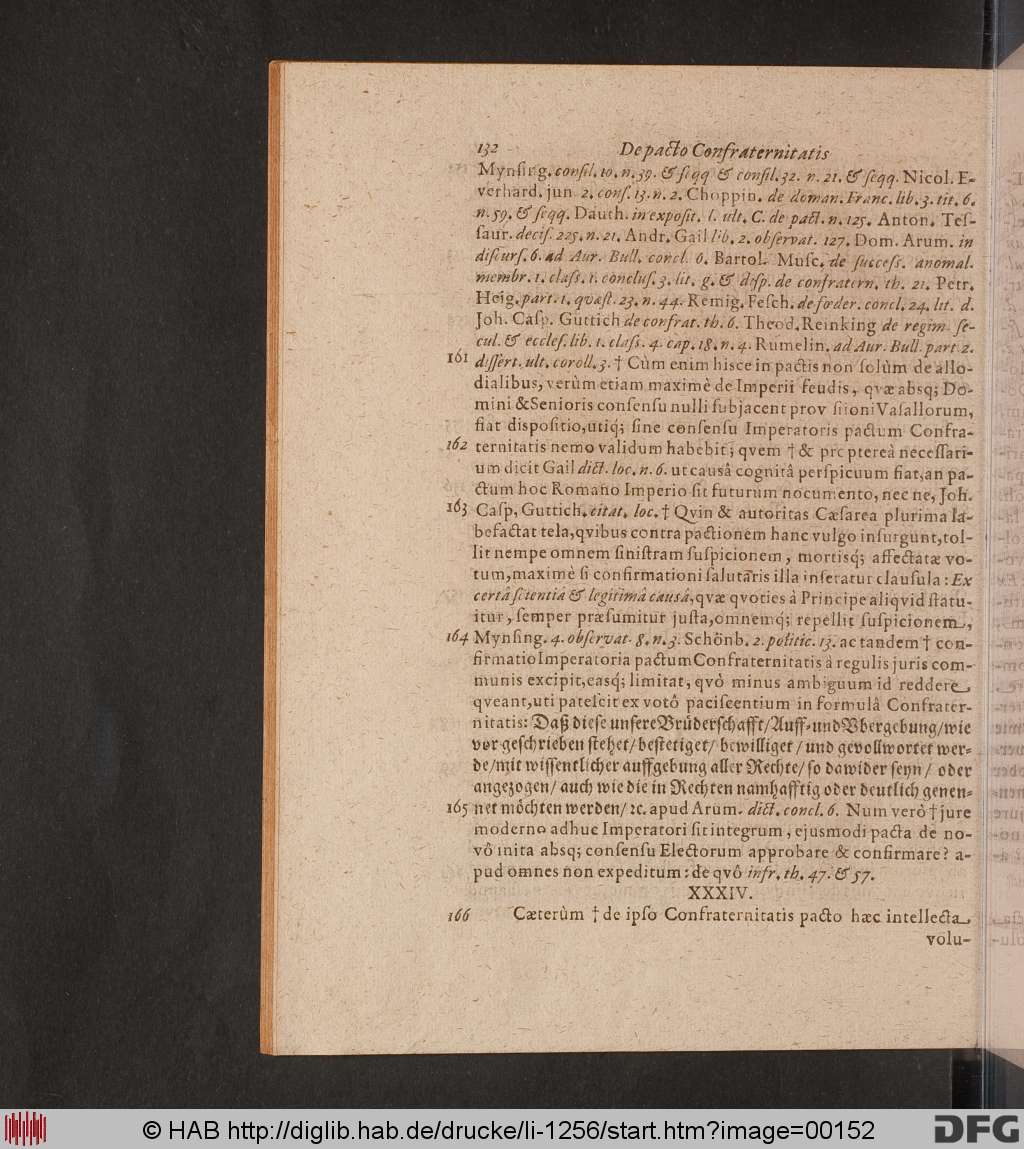 132 De pacto Confraternitatis
Mynſing. conſil. 10. n. 39. & ſeqq & conſil. 32. n. 21. & ſeqq. Nicol. E-
verhard. jun 2. conſ. 13. n. 2. Choppin. de doman. Franc. lib. 3. tit. 6.
n. 59. & ſeqq. Dauth. in expoſit. l. ult. C. de pact. n. 125. Anton. Teſ-
ſaur. deciſ. 225. n. 21. Andr. Gail lib. 2. obſervat. 127. Dom. Arum. in
diſcurſ. 6. ad Aur. Bull. concl. 6. Bartol. Muſc. de ſucceſſ. anomal.
membr. 1. claſſ. 1. concluſ. 3. lit. g. & diſp. de confratern. th. 21. Petr.
Heig. part. 1. qvæſt. 23. n. 44. Remig. Feſch. de fœder. concl. 24. lit. d.
Joh. Caſp. Guttich de confrat. th. 6. Theod. Reinking de regim. ſe-
cul. & eccleſ. lib. 1. claſſ. 4. cap. 18. n. 4. Rumelin. ad Aur. Bull. part 2.
161 diſſert. ult. coroll. 3. † Cùm enim hisce in pactis non ſolùm de allo-
dialibus, verùm etiam maximè de Imperii feudis, qvæ absq; Do-
mini & Senioris conſenſu nulli ſubjacent prov ſiioni Vaſallorum,
fiat diſpoſitio, utiq; ſine conſenſu Imperatoris pactum Confra-
162 ternitatis nemo validum habebit; qvem † & prc pterea neceſſari-
um dicit Gail dict. loc. n. 6. ut causâ cognitâ perſpicuum fiat, an pa-
ctum hoc Romano Imperio ſit futurum nocumento, nec ne, Joh.
163 Caſp, Guttich. citat. loc. † Qvin & autoritas Cæſarea plurima la-
befactat tela, qvibus contra pactionem hanc vulgo inſurgunt, tol-
lit nempe omnem ſiniſtram ſuſpicionem, mortisq; affectatæ vo-
tum, maximè ſi confirmationi ſalutaris illa inſeratur clauſula: Ex
certâ ſcientiâ & legitimâ causâ, qvæ qvoties à Principe aliqvid ſtatu-
itur, ſemper præſumitur juſta, omnemq; repellit ſuſpicionem,
164 Mynſing. 4. obſervat. 8. n. 3. Schönb. 2. politic. 13. ac tandem † con-
firmatio Imperatoria pactum Confraternitatis à regulis juris com-
munis excipit, easq; limitat, qvò minus ambiguum id reddere
qveant, uti pateſcit ex votô paciſcentium in formulâ Confrater-
nitatis: Daß dieſe unſere Brüderſchafft/ Auff- und Vbergebung/ wie
vor geſchrieben ſtehet/ beſtetiget/ bewilliget/ und gevollwortet wer-
de/ mit wiſſentlicher auffgebung aller Rechte/ ſo dawider ſeyn/ oder
angezogen/ auch wie die in Rechten namhafftig oder deutlich genen-
165 net möchten werden/ ꝛc. apud Arum. dict. concl. 6. Num verò † jure
moderno adhuc Imperatori ſit integrum, ejusmodi pacta de no-
vô inita absq; conſenſu Electorum approbare & confirmare? a-
pud omnes non expeditum: de qvô infr. th. 47. & 57.
XXXIV.
166 Cæterùm † de ipſo Confraternitatis pacto hæc intellecta
volu-
© HAB http://diglib.hab.de/drucke/li-1256/start.htm?image=00152
DFG